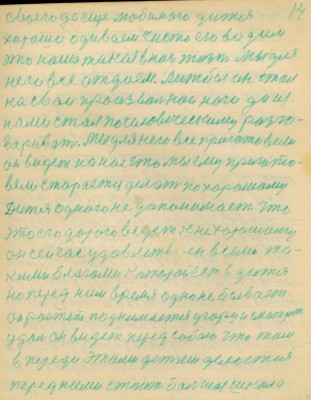 своего да еще любимого дитя 14
хорошо одиваем чисто его водим
это наша такая в нас жизнь мы для
него все отдаем. Лиш бы он стал
на свои произвольнои ноги да из
нами стал по человическиму разго-
варивать. Мы для него все приготовели
он видет на нас что мы ему пригото-
вели стараетца делать по харошому
Дитя одного не запоминает что
это его дорого ведет к не харошому
он сейчас удовлетв- ен всеми та-
кими благами которои есть дитя
но перед ним время одно не бывает
он растет поднимается у гору и смотрит
удаль он видет перед собою что там
в переди этими детьми делается
перед ними стоит большая школа